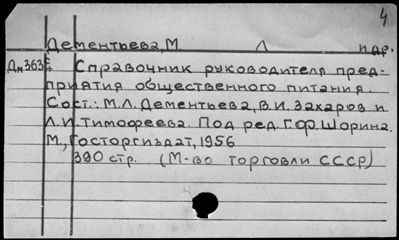 4
Дементьева, М Л и др.
Дм363 Справочник руководителя пред-
приятия общественного питания.
Сост.: М.Л. Дементьева, В.И. Захаров и
Л.И. Тимофеева. Под ред. Г.Ф. Шорина.
М., Госторгиздат, 1956
390 стр. (М-во торговли СССР)